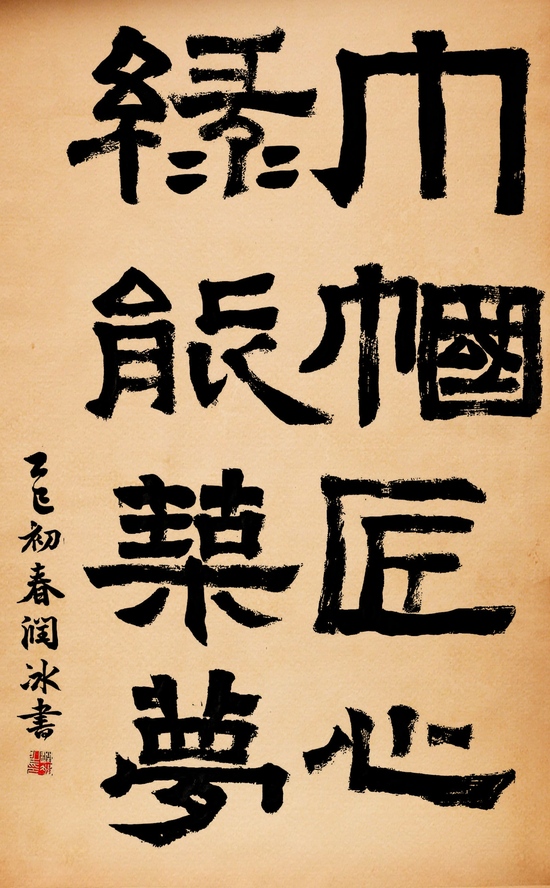 巾幗匠心
綠能築夢
乙巳初春润冰書